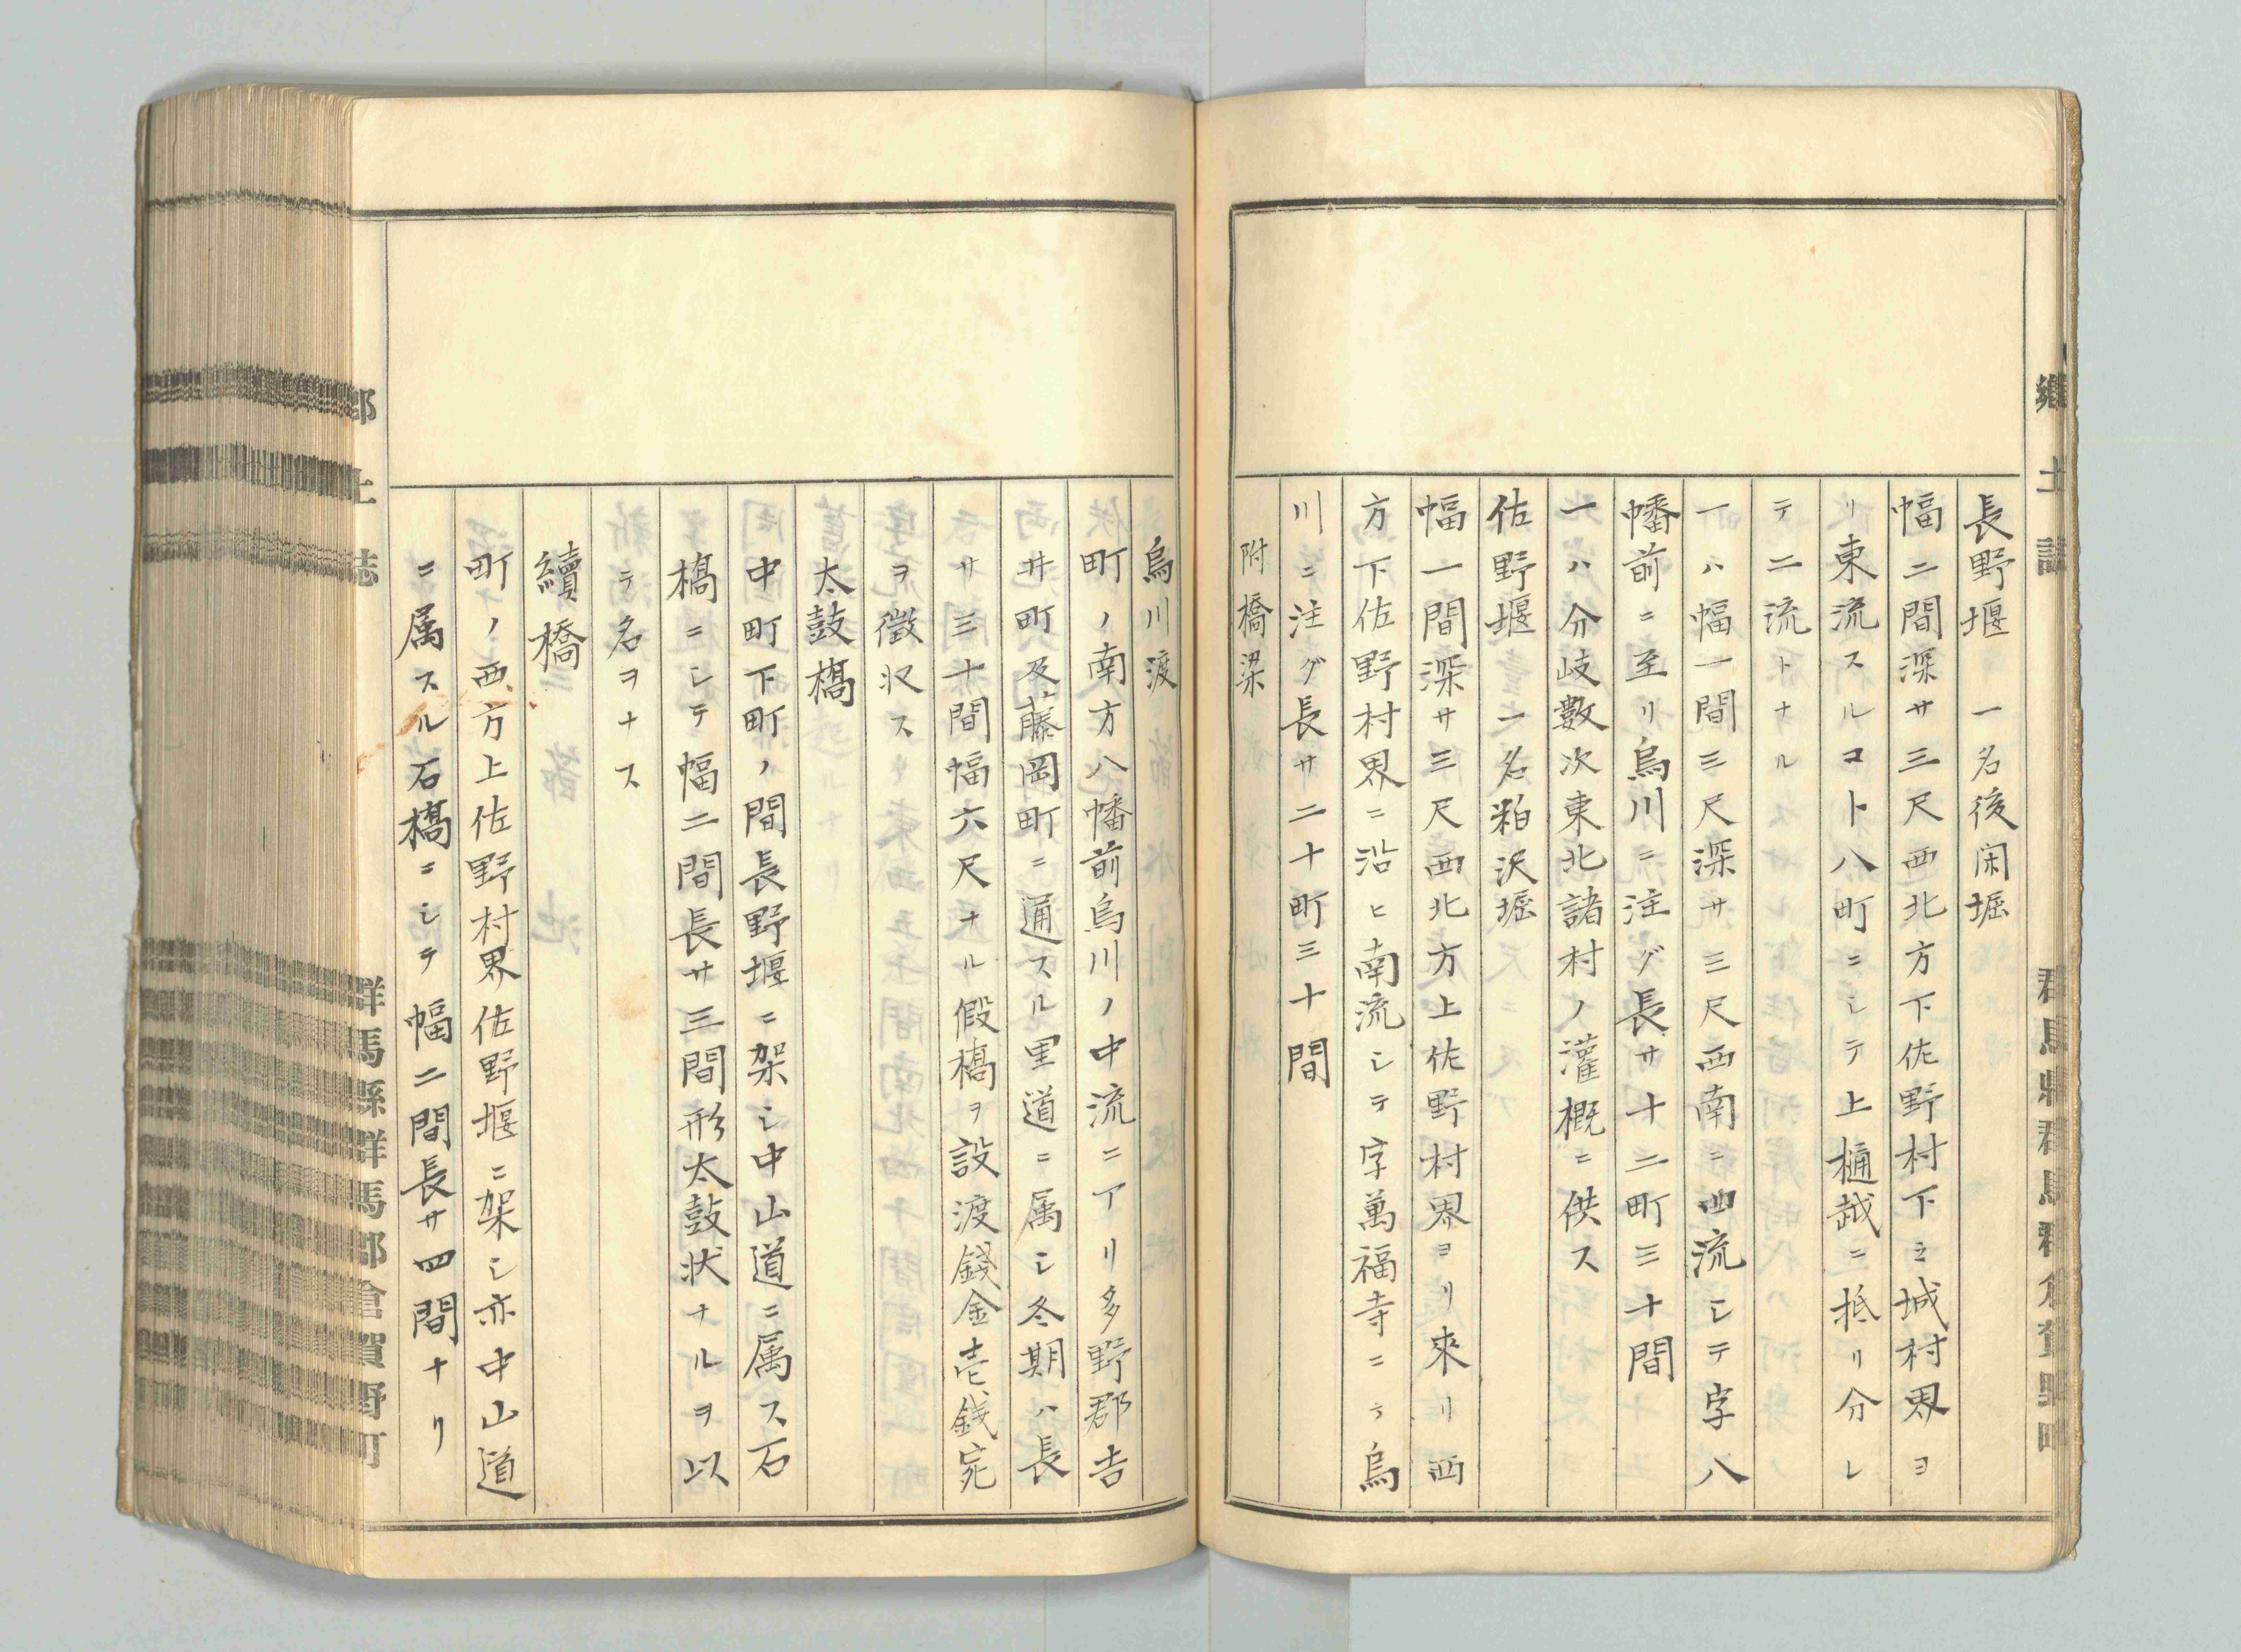 郷土誌
群馬縣群馬郡倉賀野町
長野堰　一名後閑堀
幅二間深サ三尺西北方下佐野村下之城村界ヨ
リ東流スルコト八町ニシテ上樋越ニ抵リ分レ
テ二流トナル
一ハ幅一間三尺深サ三尺西南ニ曲流シテ字八
幡前ニ至リ烏川ニ注グ長サ十二町三十間
一ハ分岐數次東北諸村ノ灌概ニ供ス
佐野堰　一名粕沢堀
幅一間深サ三尺西北方上佐野村界ヨリ來リ西
方下佐野村界ニ沿ヒ南流シテ字萬福寺ニテ烏
川ニ注グ長サ二十町三十間
附橋梁
烏川渡
町ノ南方八幡前烏川ノ中流ニアリ多野郡吉
井町及藤岡町ニ通スル里道ニ属シ冬期ハ長
サ三十間幅六尺ナル假橋ヲ設渡錢金壱銭宛
ヲ徴収ス
太鼓橋
中町下町ノ間長野堰ニ架シ中山道ニ属ス石
橋ニシテ幅二間長サ三間形太鼓状ナルヲ以
テ名ヲナス
續橋
町ノ西方上佐野村界佐野堰ニ架シ亦中山道
ニ属スル石橋ニシテ幅二間長サ四間ナリ
郷土誌
群馬縣群馬郡倉賀野町